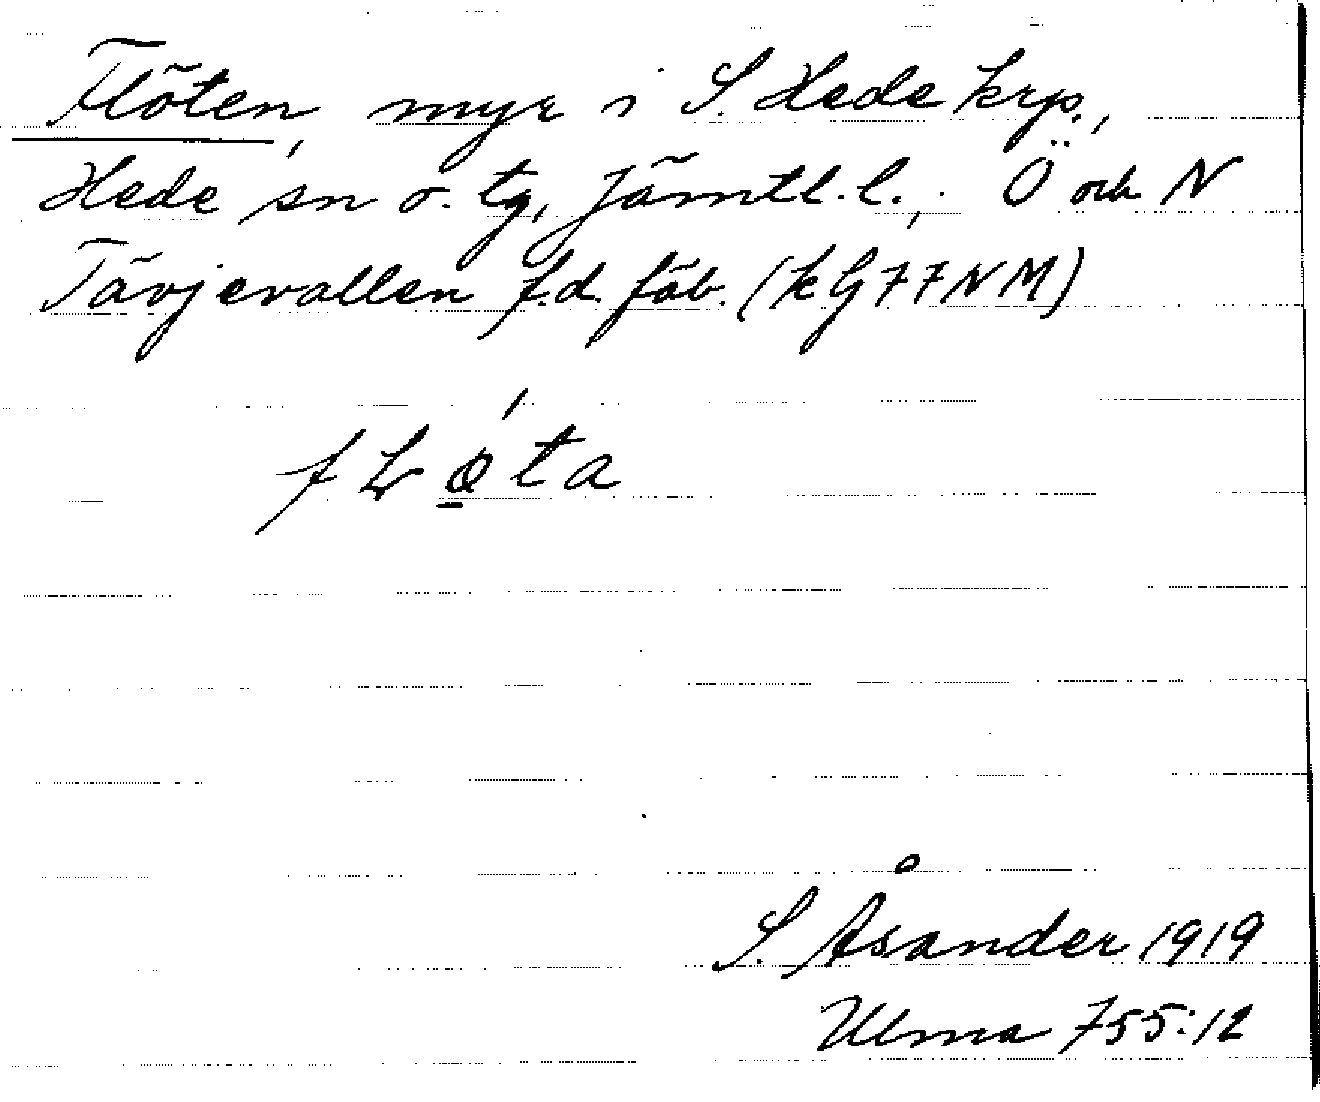 Flöten, myr i S. Hede krp.,
Hede sn o. tg, Jämtl. l., Ö och N
Tävjevallen f.d. fäb. (kG77NM)
fʟǿ̠ta
S. Åsander 1919
Ulma 755:12